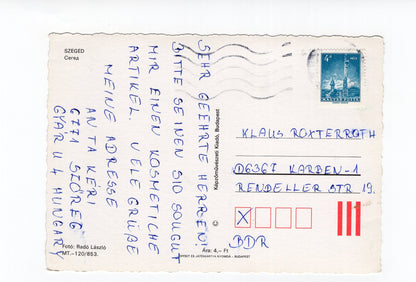 SZEGED
Cerea
SEHR GEEHRTE HERREN!
BITTE SEINEN SIO SOUGUT
MIR EINEN KOSMETICHE
ARTIKEL. VIELE GRÜßE
MEINE ADRESSE
ANTA KERI
6771 SZŐREG
GYÁR U 4 HUNGARY
Fotó: Radó László
MT.–120/853.
© Képzőművészeti Kiadó, Budapest
Ára: 4,– Ft
4 Ft
MAGYAR POSTA
KLAUS ROXTERROTH
D6367 KARBEN-1
RENDELLER STR 19.
X
BDR